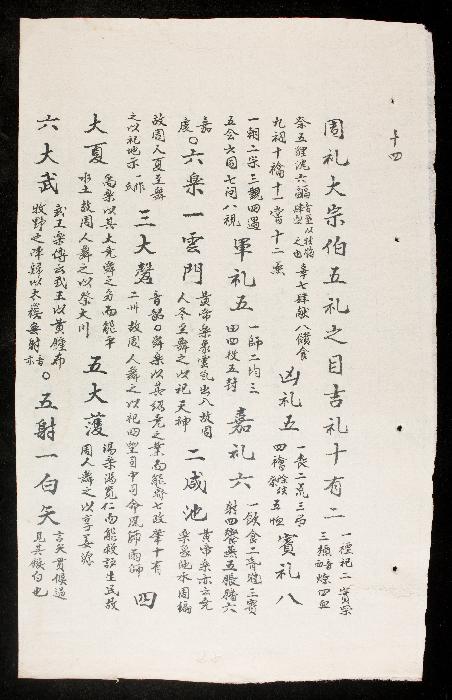 十四
周礼大宗伯五礼之目吉礼十有二 一禋祀二實柴三槱音燎四血
祭五貍沈六疈辜七肆献八饋食
九祠十禴十一嘗十二烝 凶礼五 一丧二荒三吊四禬五恤 賓礼八
一朝二宗三覲四遇
五会六同七问八視 軍礼五 一師二均三田四役五封 嘉礼六 一飲食二昏冠三賓射四饗燕五脤膰六
慶○六樂一雲門 黄帝樂象雲氣出入故周人冬至舞之以祀天神 二咸池 黄帝樂亦云堯樂
故周人夏至舞
之以祀地示 三大磬 音韶○舜樂以其紹堯之業而能齊七政肇十有二州故周人舞之以祀四望司中司命風師雨師 四
大夏 禹樂以其大堯舜之而能平水土故周人舞之以祭大川 五大濩 湯樂湯寬仁而能救護生民故周人舞之以享姜嫄
六大武 武王樂傳云武王以黄鐘布牧野之陣歸以太蔟無射 ○五射一白矢 言矢貫侯過見其鏃白也